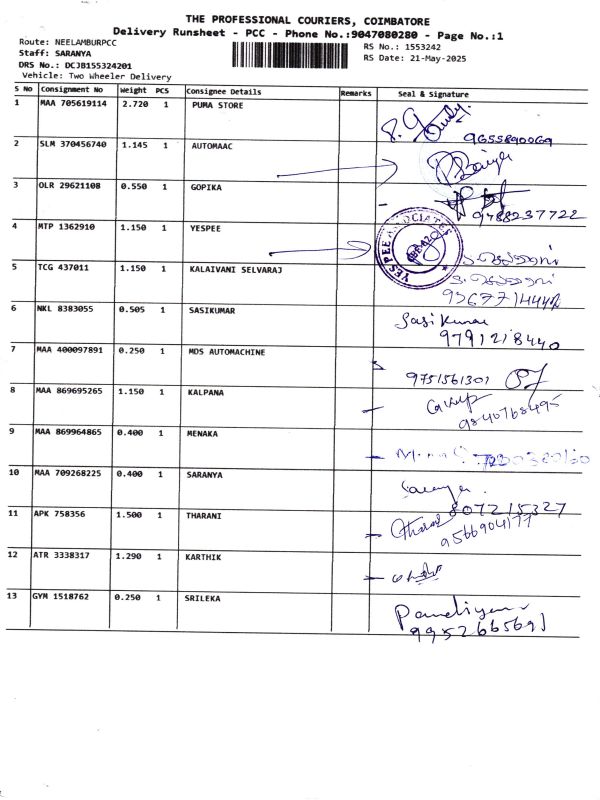 THE PROFESSIONAL COURIERS, COIMBATORE
Delivery Runsheet - PCC - Phone No.:9047080280 - Page No.:1
Route: NEELAMBURPCC
Staff: SARANYA
DRS No.: DCJB155324201
Vehicle: Two Wheeler Delivery
RS No.: 1553242
RS Date: 21-May-2025
S No Consignment No Weight PCS Consignee Details Remarks Seal & Signature
1 MAA 705619114 2.720 1 PUMA STORE
9655890069
2 SLM 370456740 1.145 1 AUTOMAAC
3 OLR 29621108 0.550 1 GOPIKA
9788237722
4 MTP 1362910 1.150 1 YESPEE
YESPEE ASSOCIATES
5 TCG 437011 1.150 1 KALAIVANI SELVARAJ
6 NKL 8383055 0.505 1 SASIKUMAR
Sasi Kumar
9791218440
7 MAA 400097891 0.250 1 MDS AUTOMACHINE
9751561301
8 MAA 869695265 1.150 1 KALPANA
9840768495
9 MAA 869964865 0.400 1 MENAKA
10 MAA 709268225 0.400 1 SARANYA
8072215327
11 APK 758356 1.500 1 THARANI
9566904177
12 ATR 3338317 1.290 1 KARTHIK
13 GYM 1518762 0.250 1 SRILEKA
9952665691